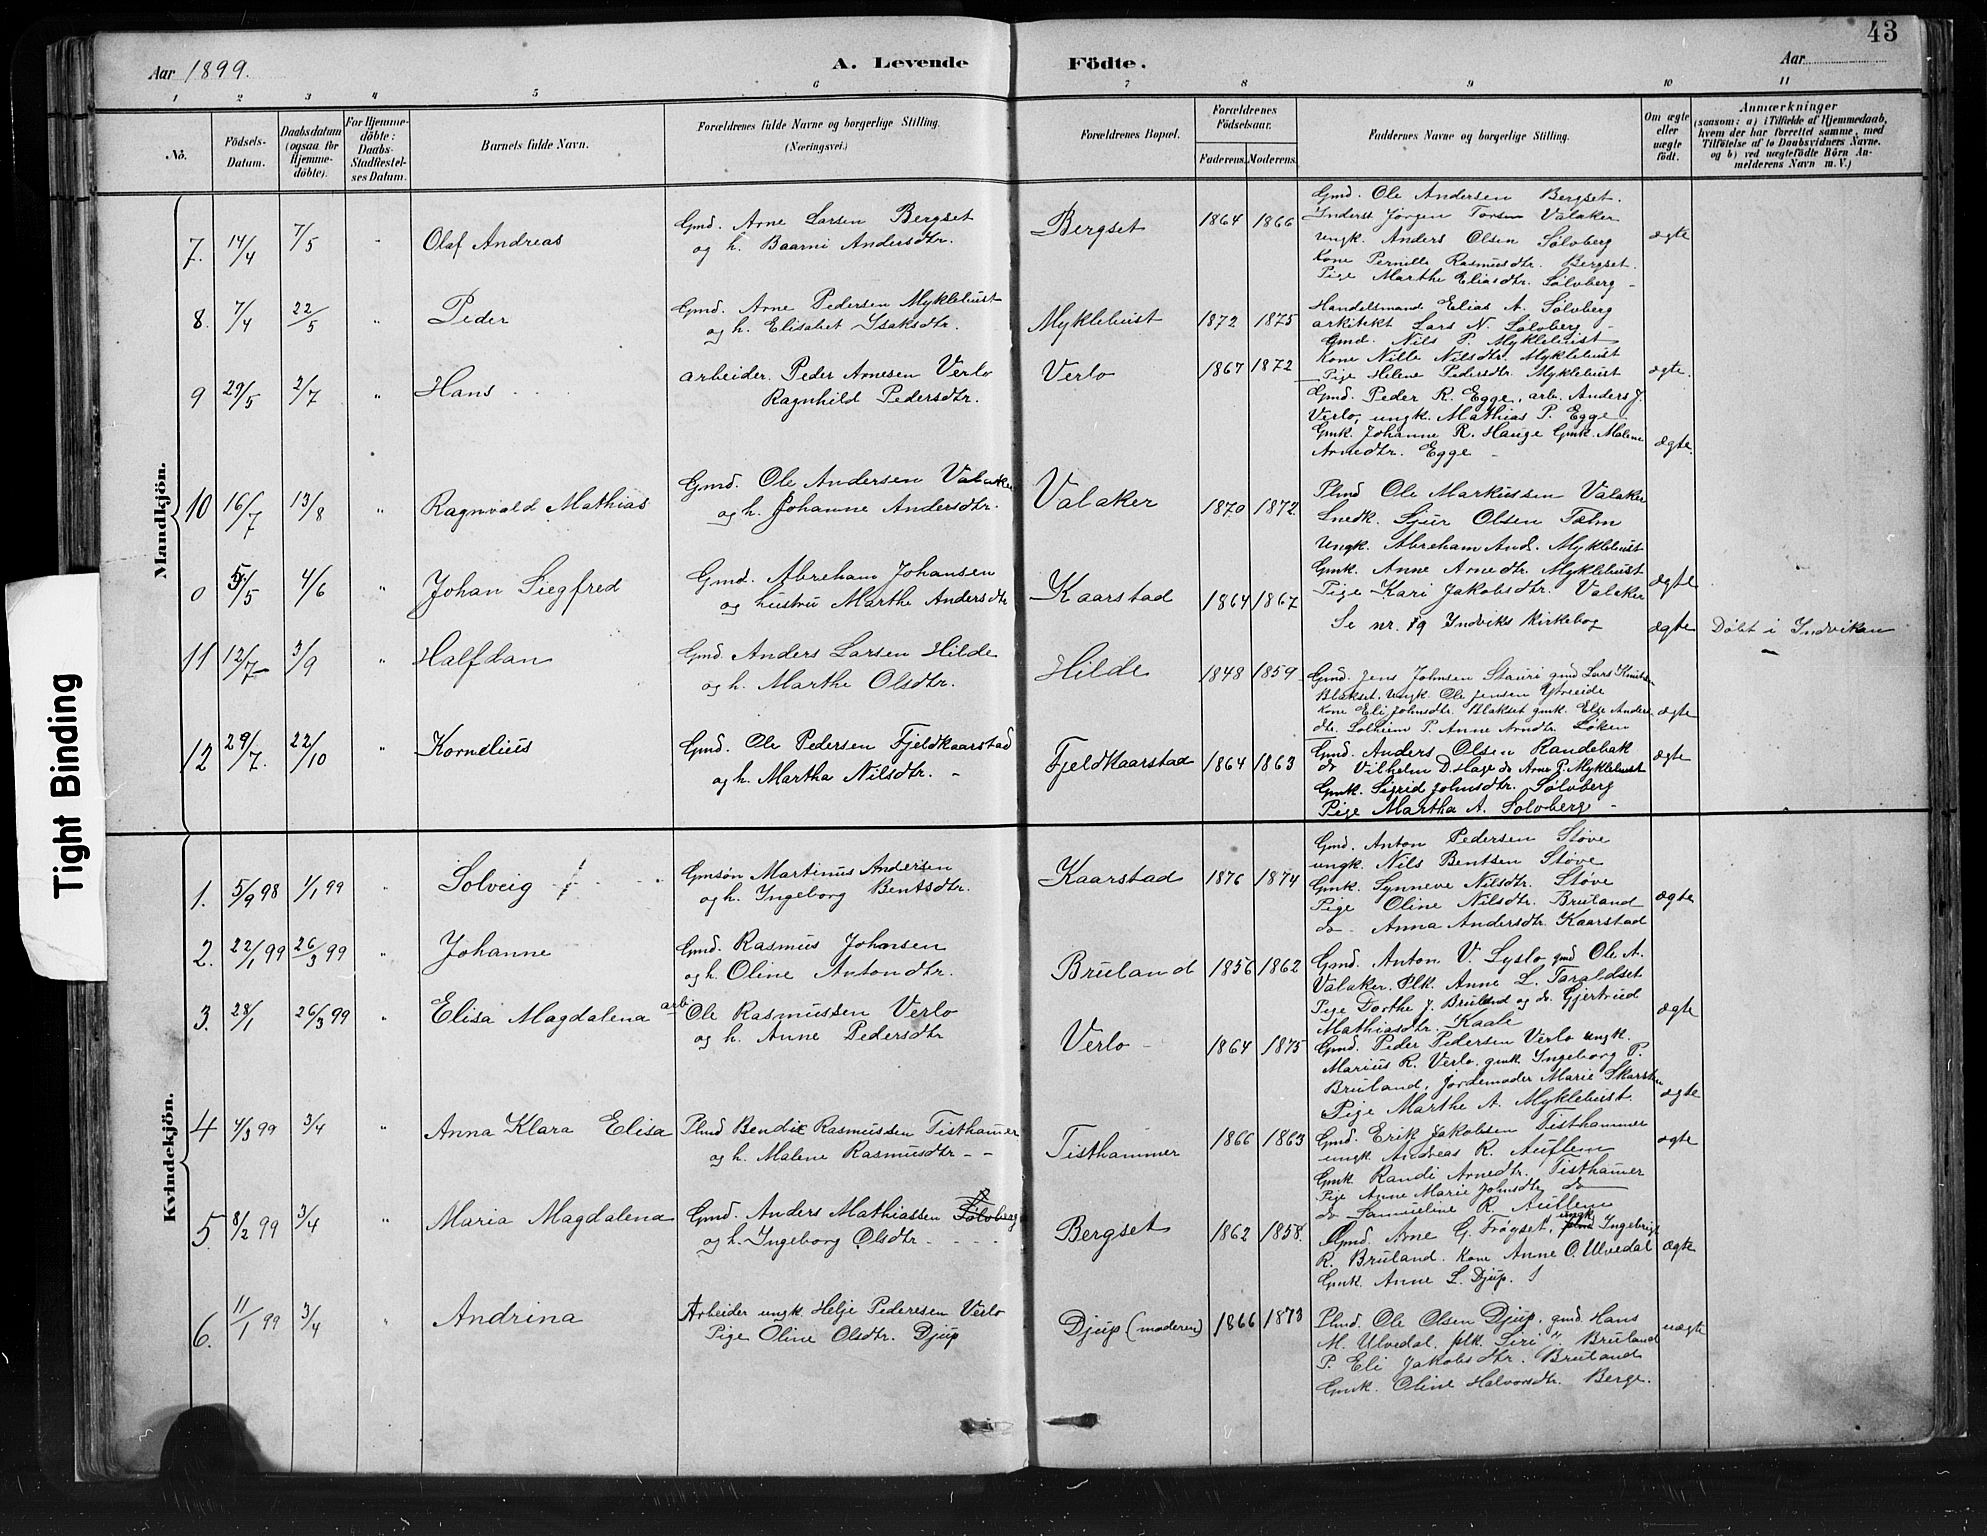 43
Aar 1899.
A. Levende Födte.
Aar
1 2 3 4 5 6 7 8 9 10 11
No.
Födsels-Datum.
Daabsdatum (ogsaa for Hjemme-döbte).
For Hjemme-döbte: Daabs-Stadfæstel-ses Datum.
Barnets fulde Navn.
Forældrenes fulde Navne og borgerlige Stilling. (Næringsvei.)
Forældrenes Bopæl.
Forældrenes Födselsaar.
Faderens. Moderens.
Faddernes Navne og borgerlige Stilling.
Om ægte eller uægte födt.
Anmærkninger
(saasom: a) i Tilfælde af Hjemmedaab, hvem der har forrettet samme, med Tilföielse af to Daabsvidners Navne. og b) ved uægtefödte Börn An-melderens Navn m. V.)
Mandkjön.
7. 14/4 7/5 " Olaf Andreas
Gmd. Arne Larsen Bergset
og h. Baarni Andersdtr.
Bergset 1864 1866
Gmd. Ole Andersen Bergset.
Inderst Jørgen Torsen Valaker
ungk. Anders Olsen Sølvberg
Kone Pernille Rasmusdtr. Bergset.
Pige Marthe Eliasdtr. Sølvberg
ægte
8. 7/4 22/5 " Peder
Gmd. Arne Pedersen Myklebust
og h. Elisabet Ysaksdtr.
Myklebust 1872 1875
Handelsmand Elias A. Sølvberg
arkitekt Lars N. Sølvberg
Gmd. Nils P. Myklebust
Kone Nille Nilsdtr. Myklebust
Pige Helene Pedersdtr. Myklebust
ægte.
9 29/5 2/7 " Hans
arbeider. Peder Arnesen Verlo
Ragnhild Pedersdtr.
Verlo 1867 1872
Gmd. Peder R. Egge, arb. Anders J.
Verlo, ungk. Mathias P. Egge
Gmk. Johanne R. Hauge Gmk. Malene
Arnedtr. Egge
ægte.
10 16/7 13/8 " Ragnvald Mathias
Gmd. Ole Andersen Valaker
og h. Johanne Andersdtr.
Valaker 1870 1872.
Plmd Ole Markussen Valaker
Snedk. Sjur Olsen
Ungk. Abreham And. Myklebust
Gmk. Anne Arnedtr. Myklebust
Pige Kari Jakobsdtr. Valaker
ægte
0 5/5 4/6 " Johan Siegfred
Gmd. Abreham Johansen
og hustru Marthe Andersdtr
Kaarstad 1864 1867
Se nr. 19 Indviks Kirkebog
ægte Døbt i Indviken
11 12/7 3/9 " Halfdan
Gmd. Anders Larsen Hilde
og h. Marthe Olsdtr.
Hilde 1848 1859
Gmd. Jens Johnsen Stauri gmd Lars Knutsen
Blakset. Ungk. Ole Jensen Ytreeide
Kone Eli Johnsdtr. Blakset gmk. Else Anders
dtr. Solheim P. Anne Arndtr. Løken
ægte
12 29/7. 22/10 " Kornelius
Gmd. Ole Pedersen Fjeldkaarstad
og h. Martha Nilsdtr.
Fjeldkaarstad 1864 1863
Gmd. Anders Olsen Randabak
do Vilhelm D. Hage do Arne P. Myklebust
Gmk. Sigrid Johnsdtr. Sølvberg
Pige Martha A. Solvberg
ægte
Kvindekjön.
1. 5/9 98 1/1 99 " Solveig
Gmsøn Martinus Andersen
og h. Ingeborg Bentsdtr.
Kaarstad 1876 1874
Gmd. Anton Pedersen Støve
ungk. Nils Bentsen Støve
Gmk. Synneve Nilsdtr. Støve
Pige Oline Nilsdtr. Bruland
do. Anna Andersdtr. Kaarstad
ægte
2. 22/1 99 26/3 99 " Johanne
Gmd. Rasmus Johansen
og h. Oline Antondtr.
Bruland 1856 1862
Gmd. Anton V. Lyslo gmd Ole A.
Valaker. Plk. Anne L. Taraldset
Pige Dorthe J. Bruland og do. Gjertrud
Mathiasdtr. Kaale
ægte
3. 28/1 26/3 99 " Elisa Magdalena
arb. Ole Rasmussen Verlo
og h. Anne Pedersdtr
Verlo 1864 1875
Gmd. Peder Pedersen Verlo ungk.
Marius R. Verlo. gmk Ingeborg P.
Bruland, Jordemoder Marie Skarsten
Pige Marthe A. Myklebust.
ægte
4 4/3 99 3/4 " Anna Klara Elisa
Plmd Bendik Rasmussen Tisthamer
og h. Malene Rasmusdtr
Tisthammer 1866 1863
Gmd. Erik Jakobsen Tisthammer
ungk Andreas R. Auflem
Gmk Randi Arnedtr. Tisthamer
Pige Anne Marie Johnsdtr do
do Samueline R. Auflem
ægte
5. 8/2 99 3/4 " Maria Magdalena
Gmd. Anders Mathiassen Sølvberg
og h. Ingeborg Olsdtr.
Bergset 1862 1858.
Gmd. Arne G. Frøyset, ungk Ingebrigt
R. Bruland. Kone Anne O. Ulvedal
Gmk. Anne L. Djup.
ægte
6. 11/1 99 3/4 " Andrina
Arbeider ungk Helje Pedersen Verlo
Pige Oline Olsdtr. Djup
Djup (moderen) 1866 1873
Plmd. Ole Olsen Djup, gmd. Hans
M. Ulvedal. plk. Siri ". Bruland
P. Eli Jakobsdtr. Bruland
Gmk. Oline Halvorsdtr. Berge.
uægte
Tight Binding